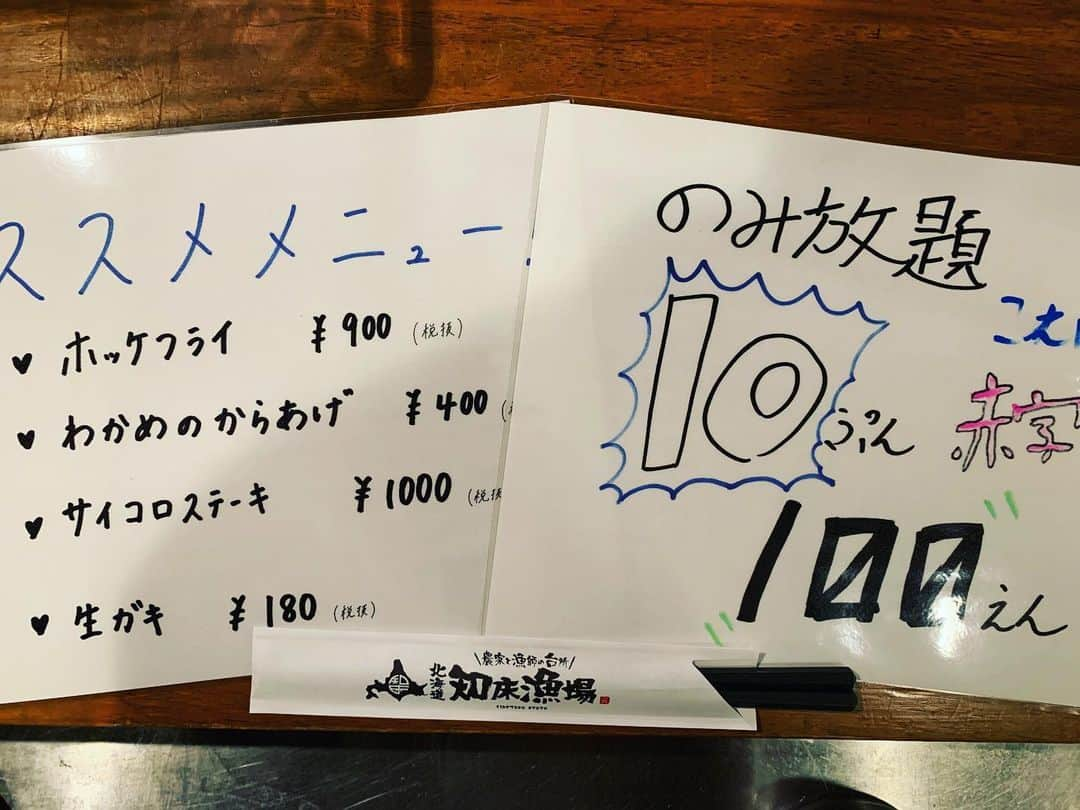 ススメメニュー
♥ ホッケフライ ¥900 (税抜)
♥ わかめのからあげ ¥400
♥ サイコロステーキ ¥1000 (税抜
♥ 生ガキ ¥180 (税抜)
のみ放題
10ぷん
赤字
"100"えん
\農家と漁師の台所/
北海道 知床漁場